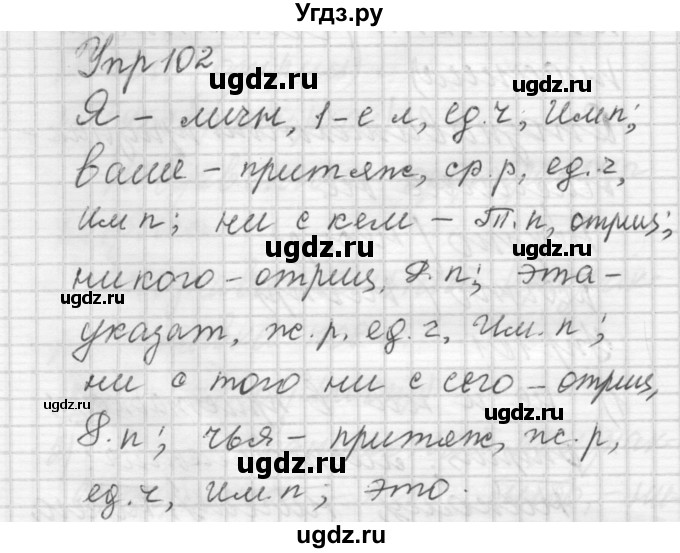 Угдз.ру
Упр 102
ugdz.ru ugdz.ru
Я – личн, 1-е л, ед.ч, Им.п;
ваше – притяж, ср.р, ед.ч,
ugdz.ru
Им п; ни с кем – Т.п, отриц;
ugdz.ru ugdz.ru
никого – отриц, Р.п; эта –
ugdz.ru
указат, ж.р, ед.ч, Им.п;
ugdz.ru
ни с того ни с сего – отриц,
ugdz.ru ugdz.ru
Р.п; чья – притяж, ж.р,
ugdz.ru
ед.ч, Им.п; это.
ugdz.ru ugdz.ru